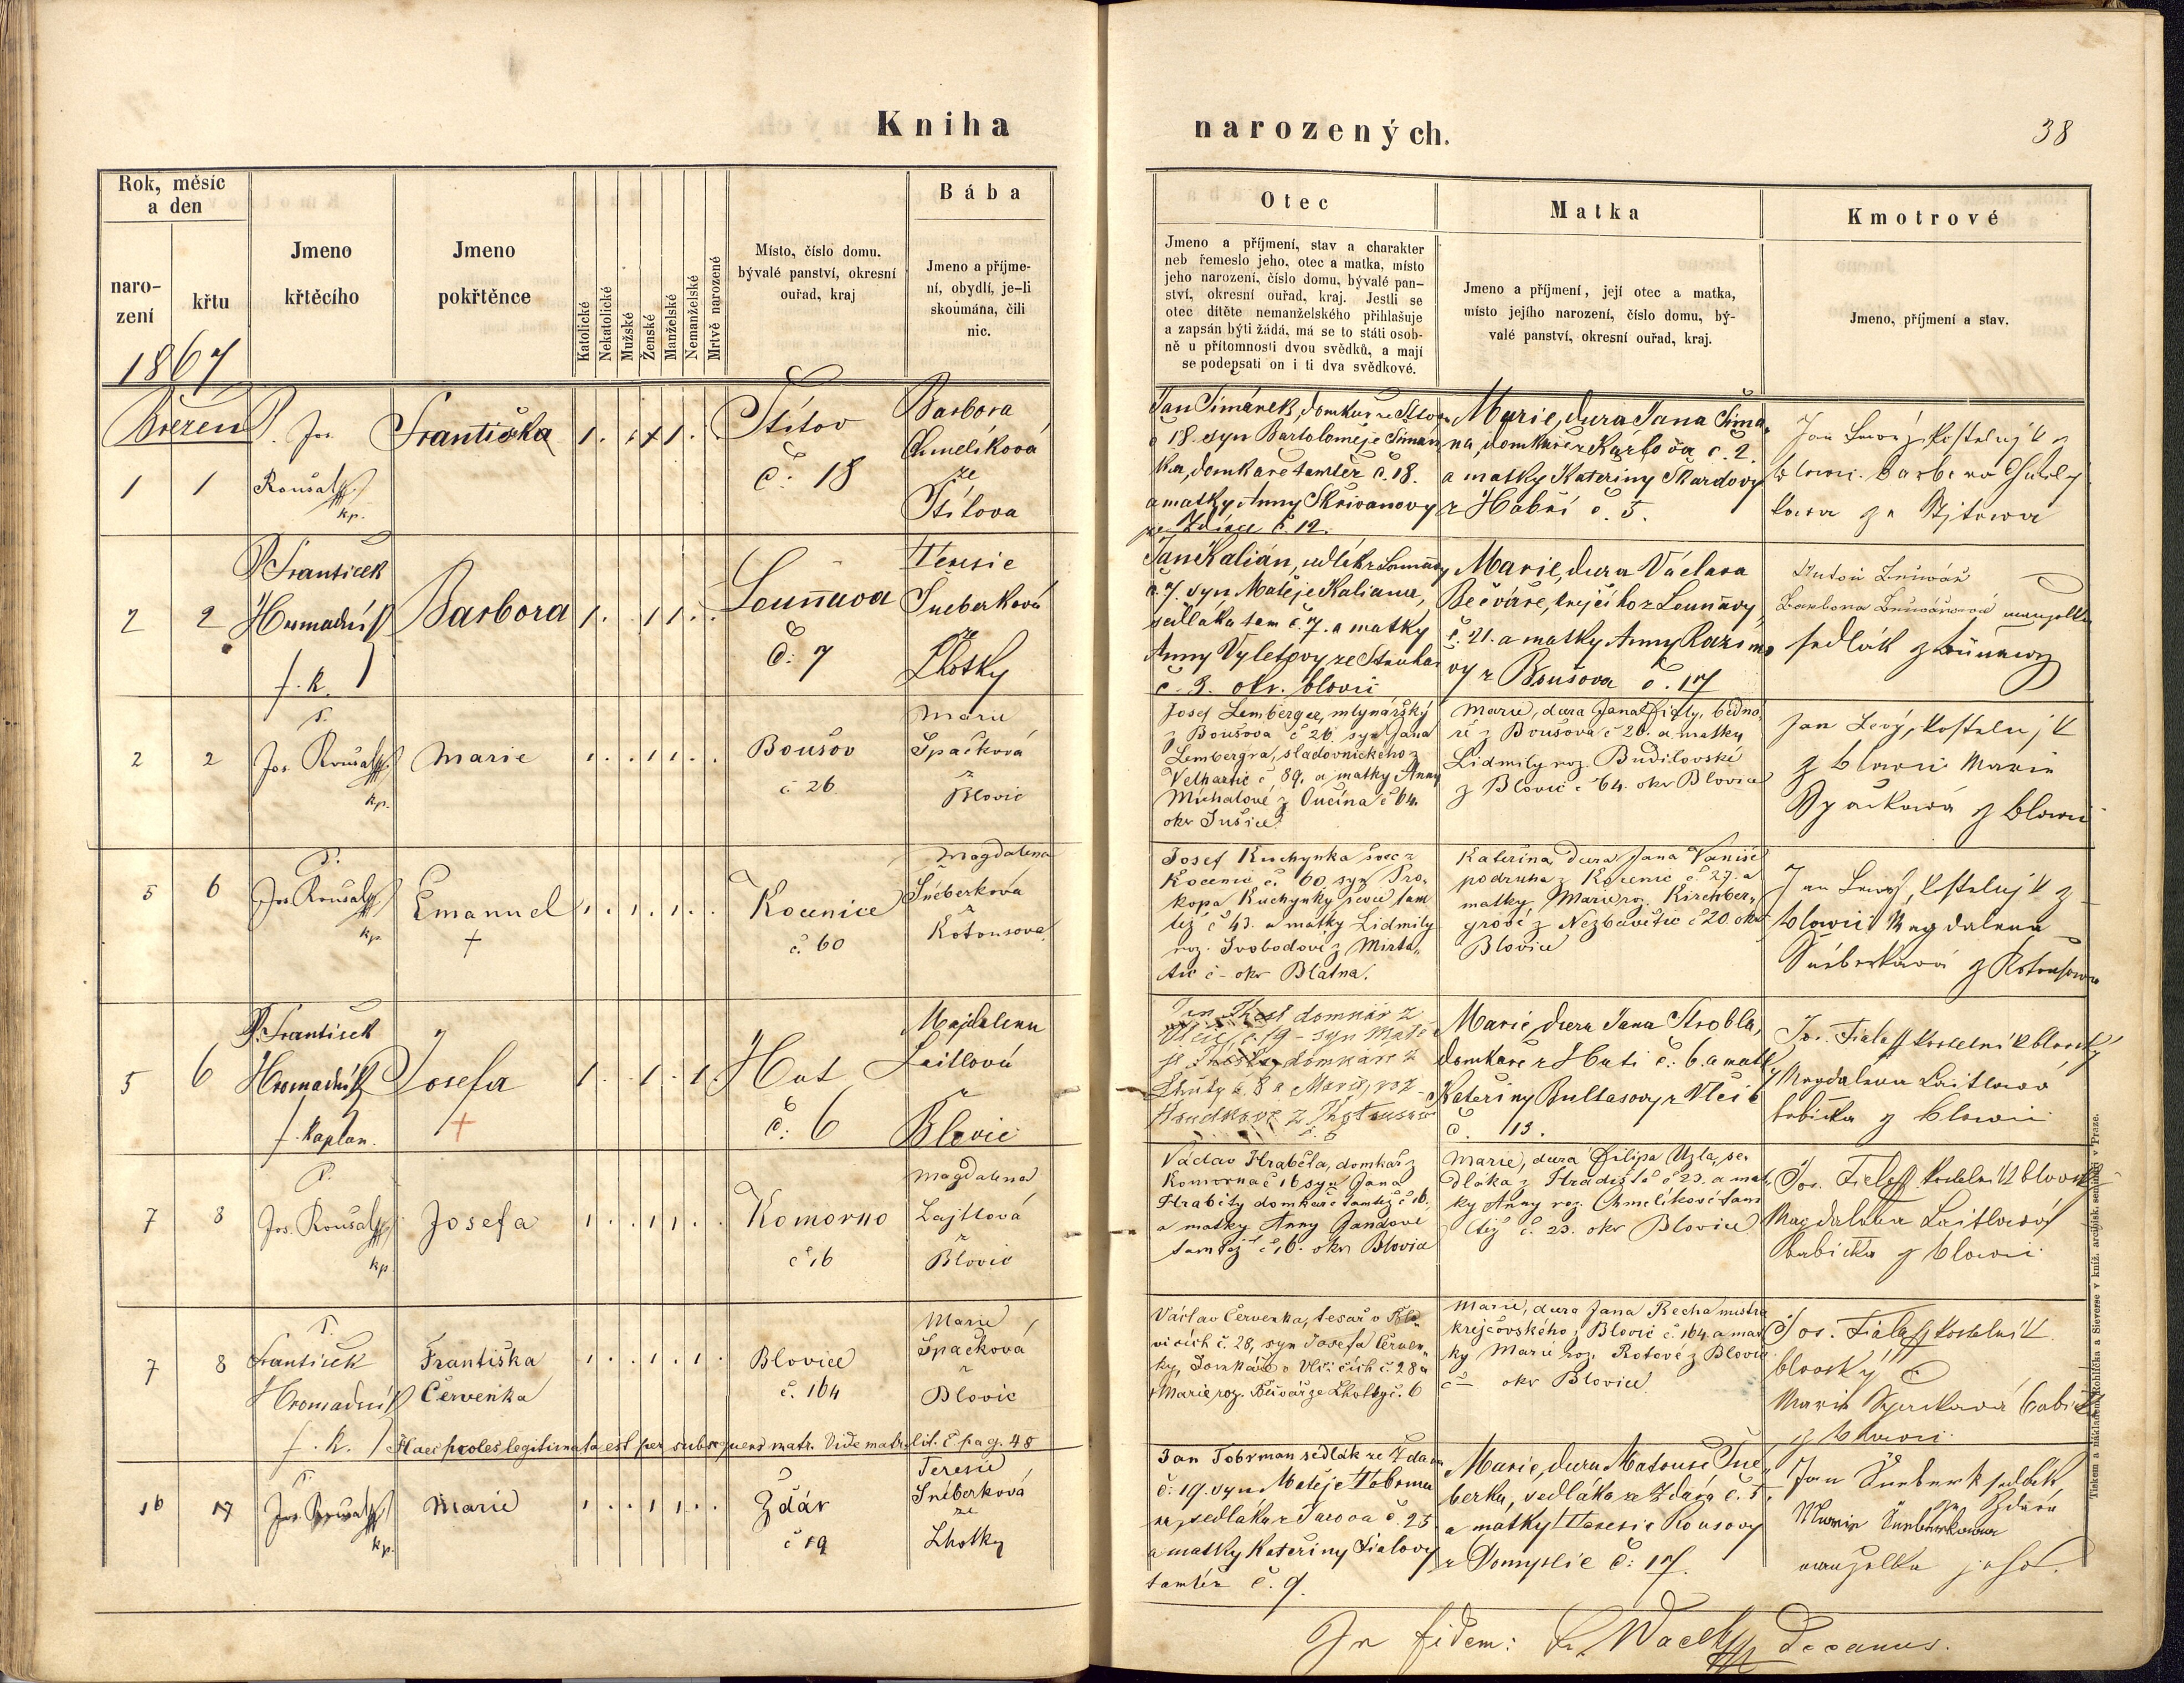 Kniha
narozených.
38
Rok, měsíc
a den
naro-
zení
křtu
1867
Jmeno
křtěcího
Jmeno
pokřtěnce
Katolické
Nekatolické
Mužské
Ženské
Manželské
Nemanželské
Mrtvě narozené
Místo, číslo domu.
bývalé panství, okresní
ouřad, kraj
Bába
Jmeno a příjme-
ní, obydlí, je-li
skoumána, čili
nic.
Otec
Jmeno a příjmení, stav a charakter
neb řemeslo jeho, otec a matka, místo
jeho narození, číslo domu, bývalé pan-
ství, okresní ouřad, kraj. Jestli se
otec dítěte nemanželského přihlašuje
a zapsán býti žádá, má se to státi osob-
ně u přítomnosti dvou svědků, a mají
se podepsati on i ti dva svědkové.
Matka
Jmeno a příjmení, její otec a matka,
místo jejího narození, číslo domu, bý-
valé panství, okresní ouřad, kraj.
Kmotrové
Jmeno, příjmení a stav.
Březen
1 1
P. Jos.
Roušal
kp.
Františka
1 . . 1 1 . .
Štítov
č. 18
Barbora
Chmelíková
ze
Štítova
Jan Šimánek, domkář ze Štítova
č 18. syn Bartoloměje Šimán
ka, domkáře tamtéž č. 18.
a matky Anny Skřivanovy
č. 12.
Marie, dcera Jana Šima
na, domkáře z č. 2.
a matky Kateriny
z Habří č. 5.
Jan Levý, kostelnjk z
blowic. Barbora Chmely
kowa ze Stjtowa
2 2
P. František
Hromadník
f. k.
Barbora
1 . . 1 1 . .
Louňava
č: 7
Teresie
Šneberková
ze
Lhotky
Jan Kalián, sedlák z Louňavy
č. 7. syn Matěje Kaliana,
sedláka tam č. 7. a matky
Anny Vyletovy ze Struhař
č. 3. okr. blovic
Marie, dcera Václava
Bečváře, krejčího z Louňavy
č. 21. a matky Anny Razimo
vy z Boušova č. 17
Anton Bečwář
Barbora Bečwářowá manzelka
sedlák z Lounawy
2 2
P.
Jos. Roušal
kp.
Marie
1 . . 1 1 . .
Boušov
č 26
Marie
Špačková
z
Blovic
Josef Lemberger, mlynářský
z Boušova č 26. syn Jana
Lembergra, sladovnického z
č 89, a matky Anny
Míchalové z č 64.
okr Sušice.
Marie, dcera Jana bedná
ře z Boušova č 26. a matky
Lidmily roz. Budilovské
z Blovic č 64. okr Blovice
Jan Levý, kostelnjk
z blowic Marie
Spackowá z blowic
5 6
P.
Jos Roušal
kp.
Emanuel
+
1 . 1 . 1 . .
Kocenice
č. 60
Magdalena
Šneberková
z
Kotousova
Josef Kuchynka švec z
Kocenic č. 60 syn Pro-
kopa Kuchynky ševce tam
též č 43. a matky Lidmily
roz. Svobodové z Mirto-
tic č - okr Blatná.
Kateřina, dcera Jana Vaniše
podruha z Kocenic č. 27. a
matky Marie roz. Kirchber-
grové z Nezbavětic č 20. okr
Blovice
Jan Lewý, kostelnjk z
blowic Magdalena
Šneberkowá z Kotousowa
5 6
P. František
Hromadník
f. kaplan.
Josefa
+
1 . . 1 . 1 .
Huť
č. 6
Majdalena
Laitlová
z
Blovic
domkář z
Vlčic, č. 19 - syn Matě
domkáře z
č. 8 a Marie, roz
z Chotousova
č. 6
Marie, dcera Jana Strobla,
domkáře z Huti č. 6. a matky
Kateřiny Bultasovy z Vlčic
č. 13.
Jos. Fiala kostelník blovský
Magdalena Laitlowá
babička z blowic
7 8
P.
Jos. Roušal
kp.
Josefa
1 . . 1 1 . .
Komorno
č 16
Magdalena
Lajtlová
z
Blovic
Václav Hraběta, domkář z
Komorna č 16 syn Jana
Hraběty domkáře tamtéž č 16.
a matky Anny Jandové
tamtéž č 16. okr Blovice
Marie, dcera Filipa Uzla, se-
dláka z Hradiště č 23. a mat-
ky Anny roz. Chmelíkové tam
též č. 23. okr Blovice
Jos. Fiala kostelník blovský
Magdalena Laitlowá
babička z blowic
7 8
P.
František
Hromadník
f. k.
Františka
Červenka
1 . . 1 . 1 .
Blovice
č. 164
Marie
Špačková
z
Blovic
Václav Červenka, tesař v Blo-
vicích č. 28, syn Josefa Červen-
ky, domkáře v Vlčicích č. 28 a
Marie, roz. Bečvář ze Lhotky č. 6
Marie, dcera Jana Recha mistra
krejčovského z Blovic č. 164. a mat
ky Marie roz. Rotové z Blovic
č - okr Blovice
Jos. Fiala kostelník
blovský
Marie Spackowá babička
z blowic
Haec proles legitimata est per subsequens matr. Vide matr. lit. E pag. 48
16 17
P.
Jos. Roušal
kp.
Marie
1 . . 1 1 . .
Zdár
č 19
Teresie
Šneberková
ze
Lhotky
Jan Tobrman sedlák ze Zdara
č: 19. syn Matěje Tobrma
na, sedláka z č. 25
a matky Kateřiny Fialovy
tamtéž č. 9.
Marie, dcera Matouše Šne
berka, sedláka ze Zdára č. 5.
a matky Teresie Rousovy
z Domyslic č: 17.
Jan Šneberk sedlák
ze Zdára
Marie Šneberkowa
manzelka jeho.
In fidem: Fr. Wach Decanus.
Tiskem a nákladem Rohlíčka a Sieverse v kníž. arcibisk. semináři v Praze.